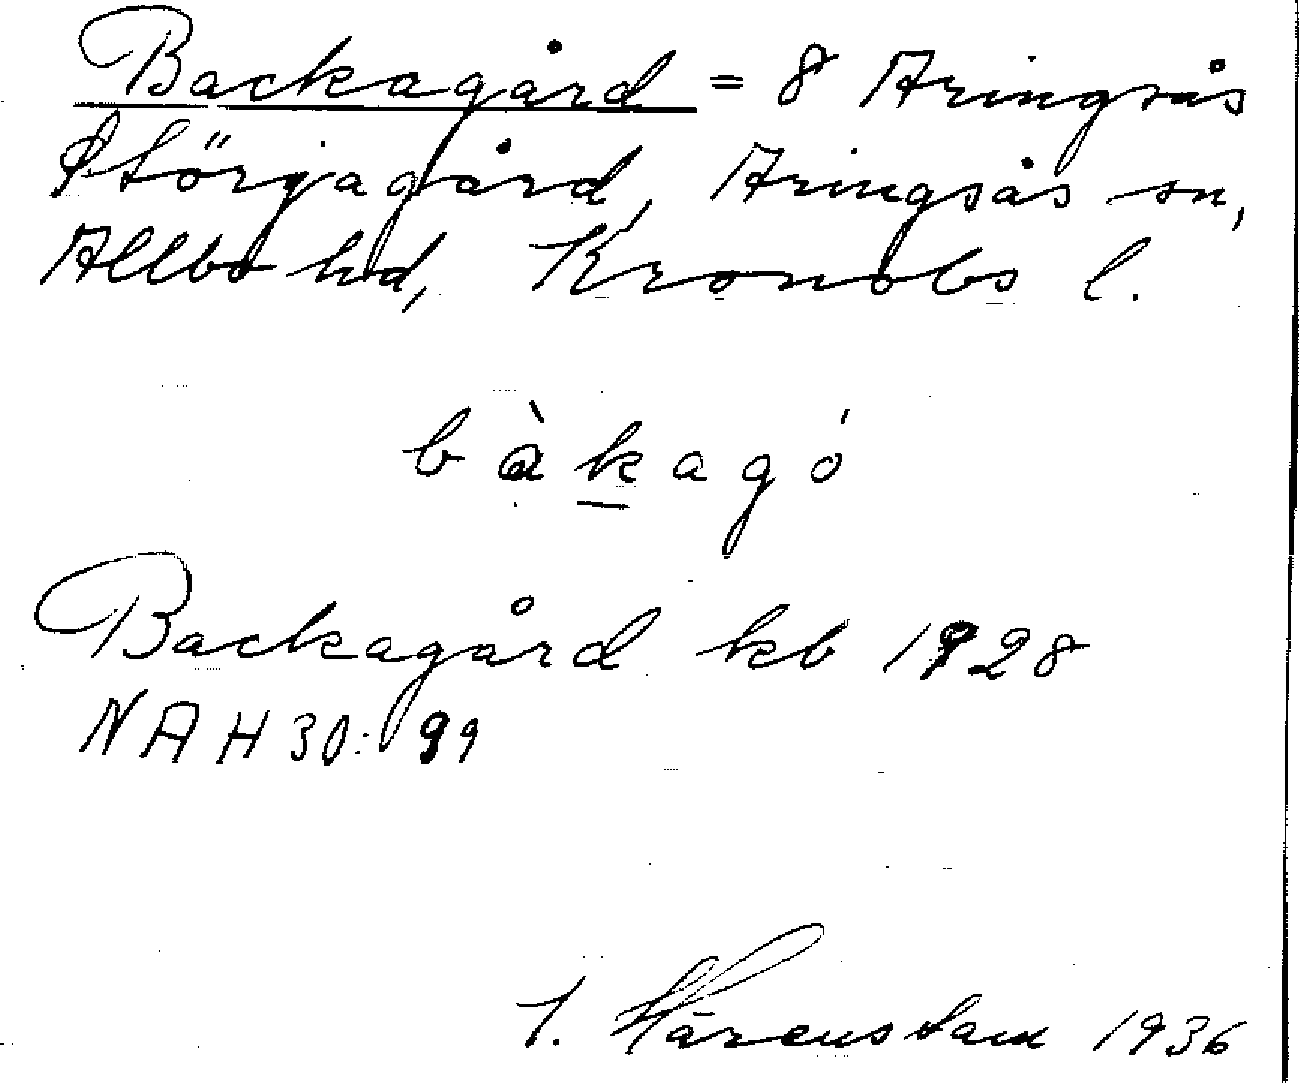 Backagård = 8 Aringsås
Störjagård, Aringsås sn,
Allbo hd, Kronobs l.
bàkagó
Backagård kb 1928
NAH 30: 99
J. Härenstam 1936